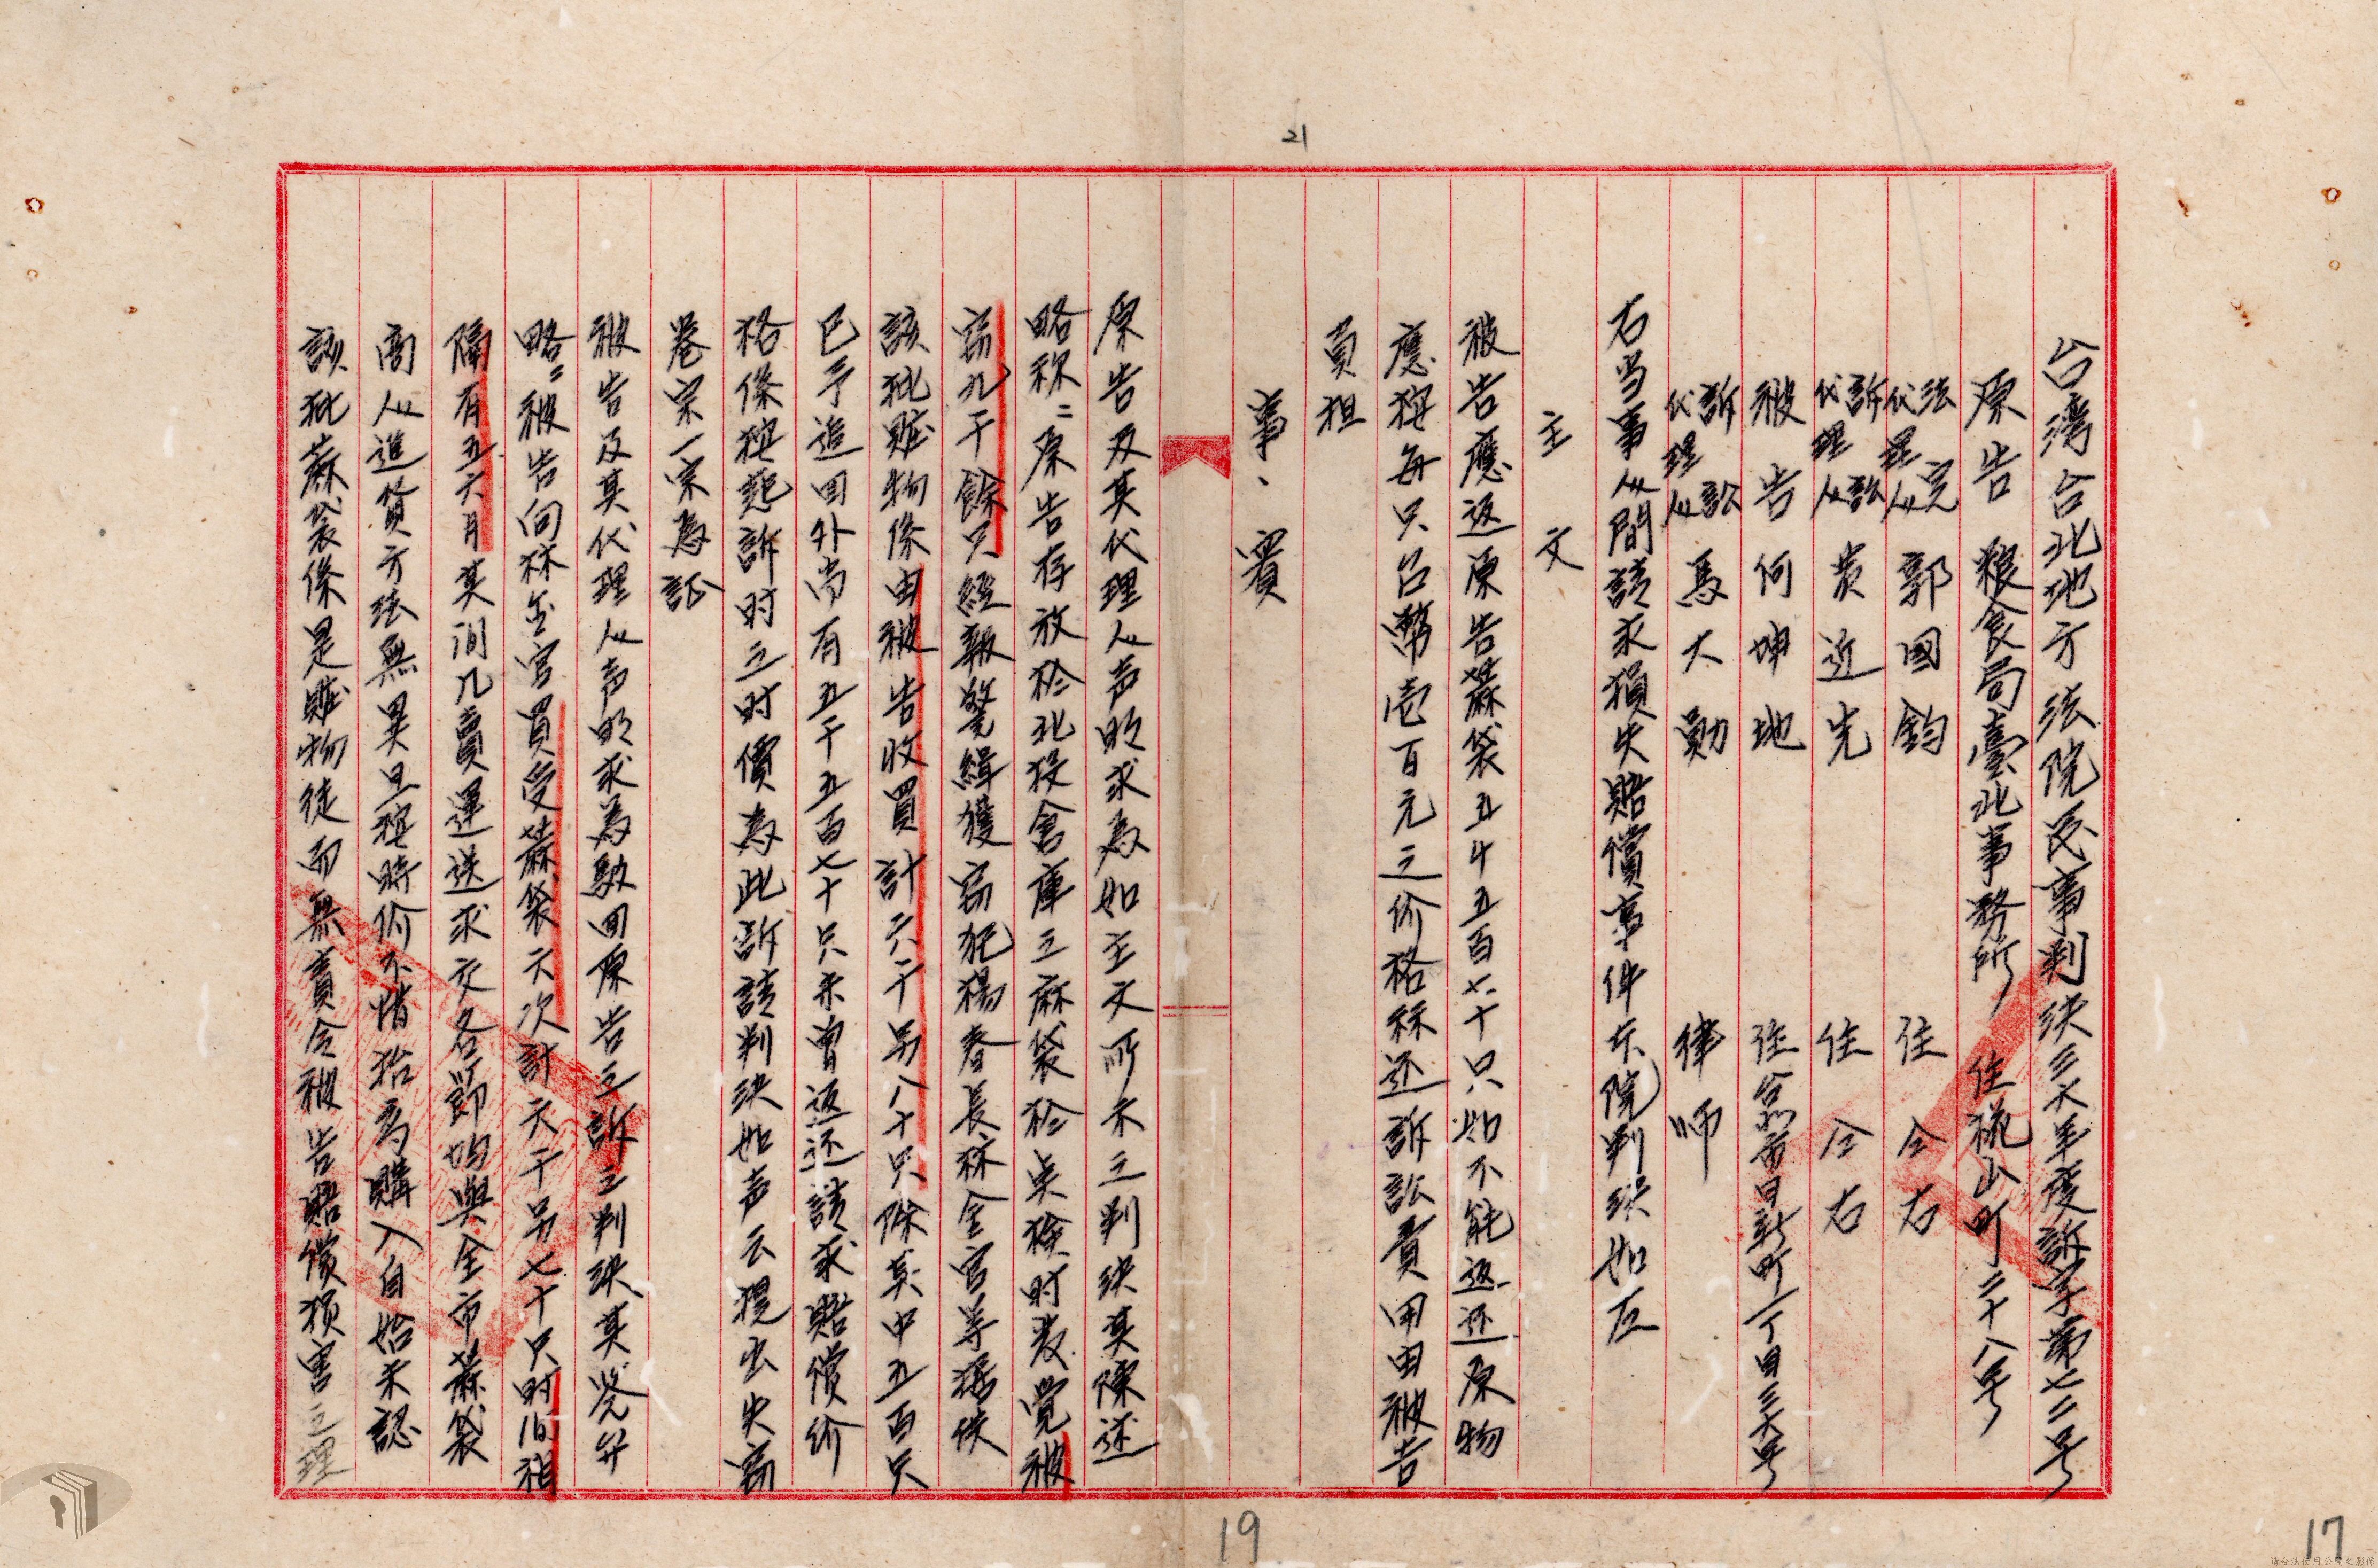 21
台湾台北地方法院民事判決三六年度訴字第七二号
原告 粮食局臺北事務所 住桃山町二十八号
法定代理人 郭國鈞 住仝右
訴訟代理人 黄近先 住仝右
被告 何坤地 住台北市日新町一丁目三六号
訴訟代理人 馬大勳 律师
右当事人間請求損失賠償事件本院判決如左
主文
被告應返原告蔴袋五千五百七十只如不能返还原物
應按每只台幣壱百元之价格祘还訴訟費用由被告
負担
事、實
原告及其代理人声明求為如主文所示之判決其陳述
略称:原告存放於北投倉庫之麻袋於吳 时发覺被
窃九千餘只經報警緝獲窃犯楊春長林金宫等 供
該批贓物係由被告收買計六千另八十只除其中五百只
已予追回外尚有五千五百七十只未曾返还請求賠償价
格係按起訴时之时價為此訴請判決如声云提出失窃
卷宗一宗為証
被告及其代理人声明求為駁回原告之訴之判決其 弁
略:被告向林金宫買受蔴袋六次計六千另七十只时间相
隔有五六月其间凡賣運送求交各節均與仝市蔴袋
商人進貨方法無異且按時价不惜 為購入自始未認
該批蔴袋係是贓物徒而無責令被告賠償损害之理
19
17